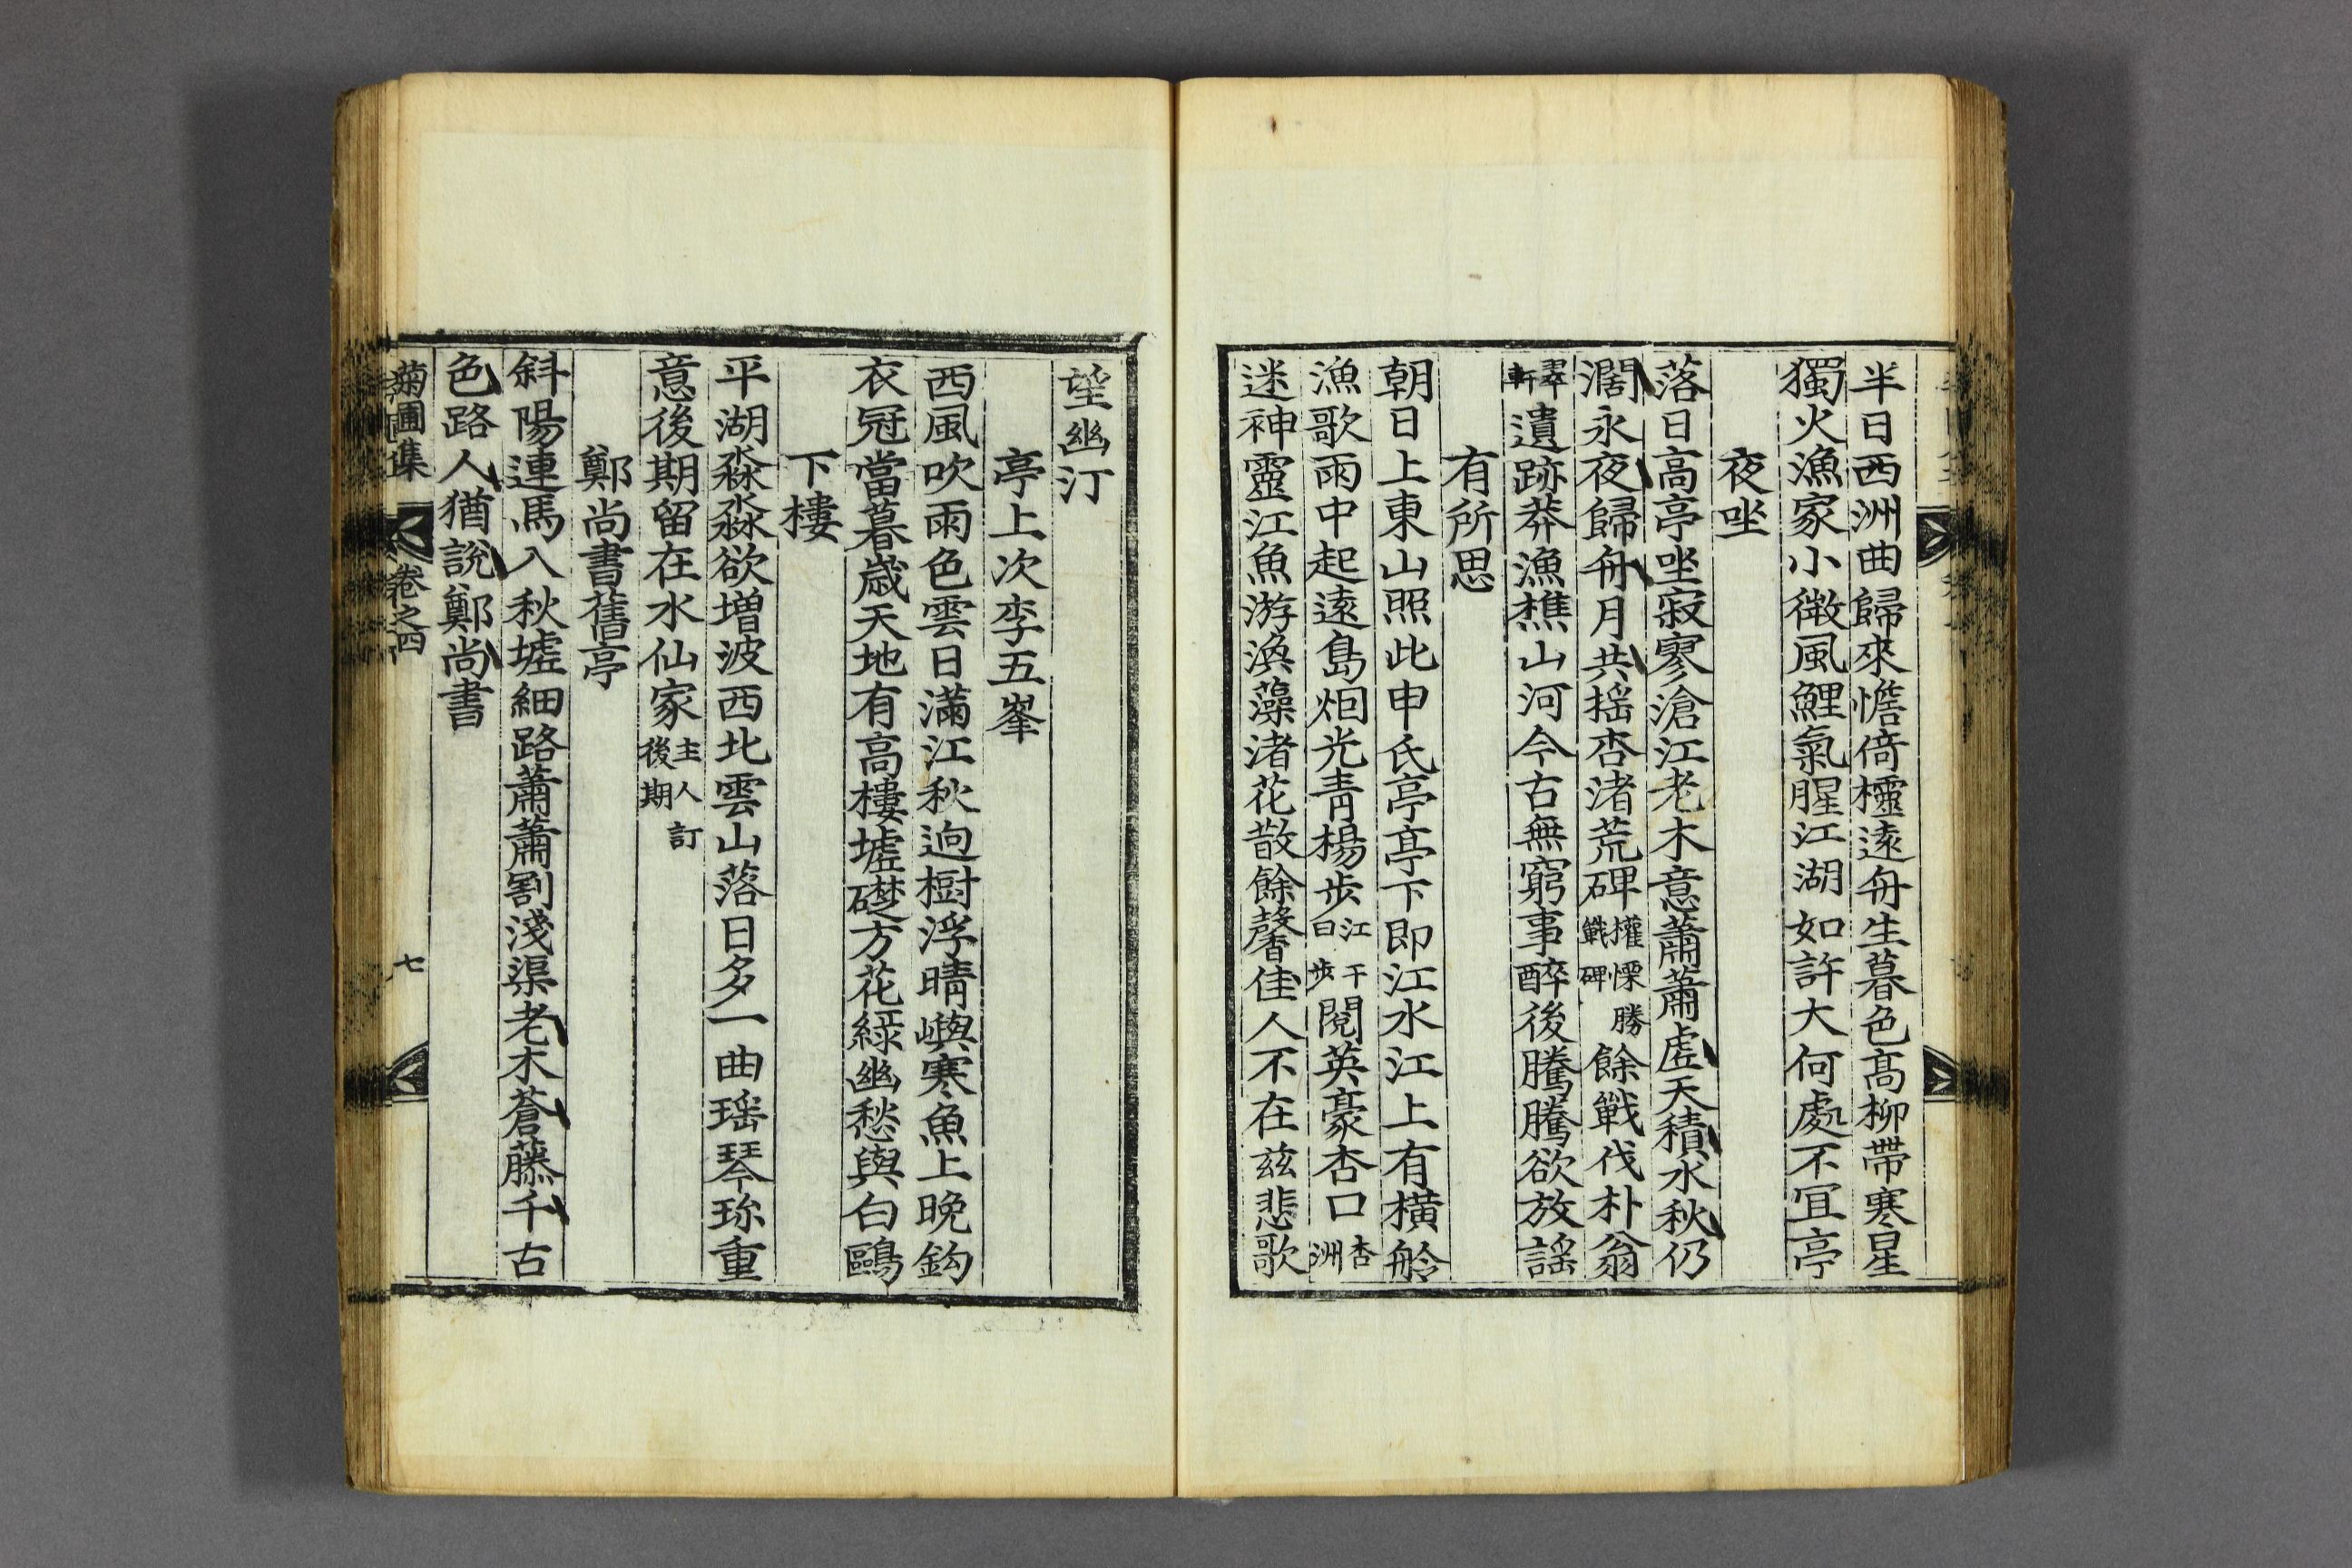 半日西洲曲歸來憺倚欞遠舟生暮色高柳帶寒星
獨火漁家小微風鯉氣腥江湖如許大何處不冝亭
夜坐
落日高亭坐寂寥滄江老木意蕭蕭虛天積水秋仍
濶永夜歸舟月共搖杏渚荒碑權慄勝戰碑餘戰伐朴翁
翠軒遺跡莽漁樵山河今古無窮事醉後騰騰欲放謠
有所思
朝日上東山照此申氏亭亭下即江水江上有橫舲
漁歌雨中起遠島烟光靑楊步江干曰步閱英豪杏口杏洲
迷神靈江魚游渙藻渚花散餘馨佳人不在玆悲歌
望幽汀
亭上次李五峯
西風吹雨色雲日滿江秋逈樹浮晴嶼寒魚上晚鈎
衣冠當暮歲天地有高樓墟礎方花綠幽愁與白鷗
下樓
平湖淼淼欲增波西北雲山落日多一曲瑤琴珎重
意後期留在水仙家主人訂後期
鄭尚書舊亭
斜陽連馬入秋墟細路蕭蕭割淺渠老木蒼藤千古
色路人猶說鄭尚書
菊圃集 卷之四 七